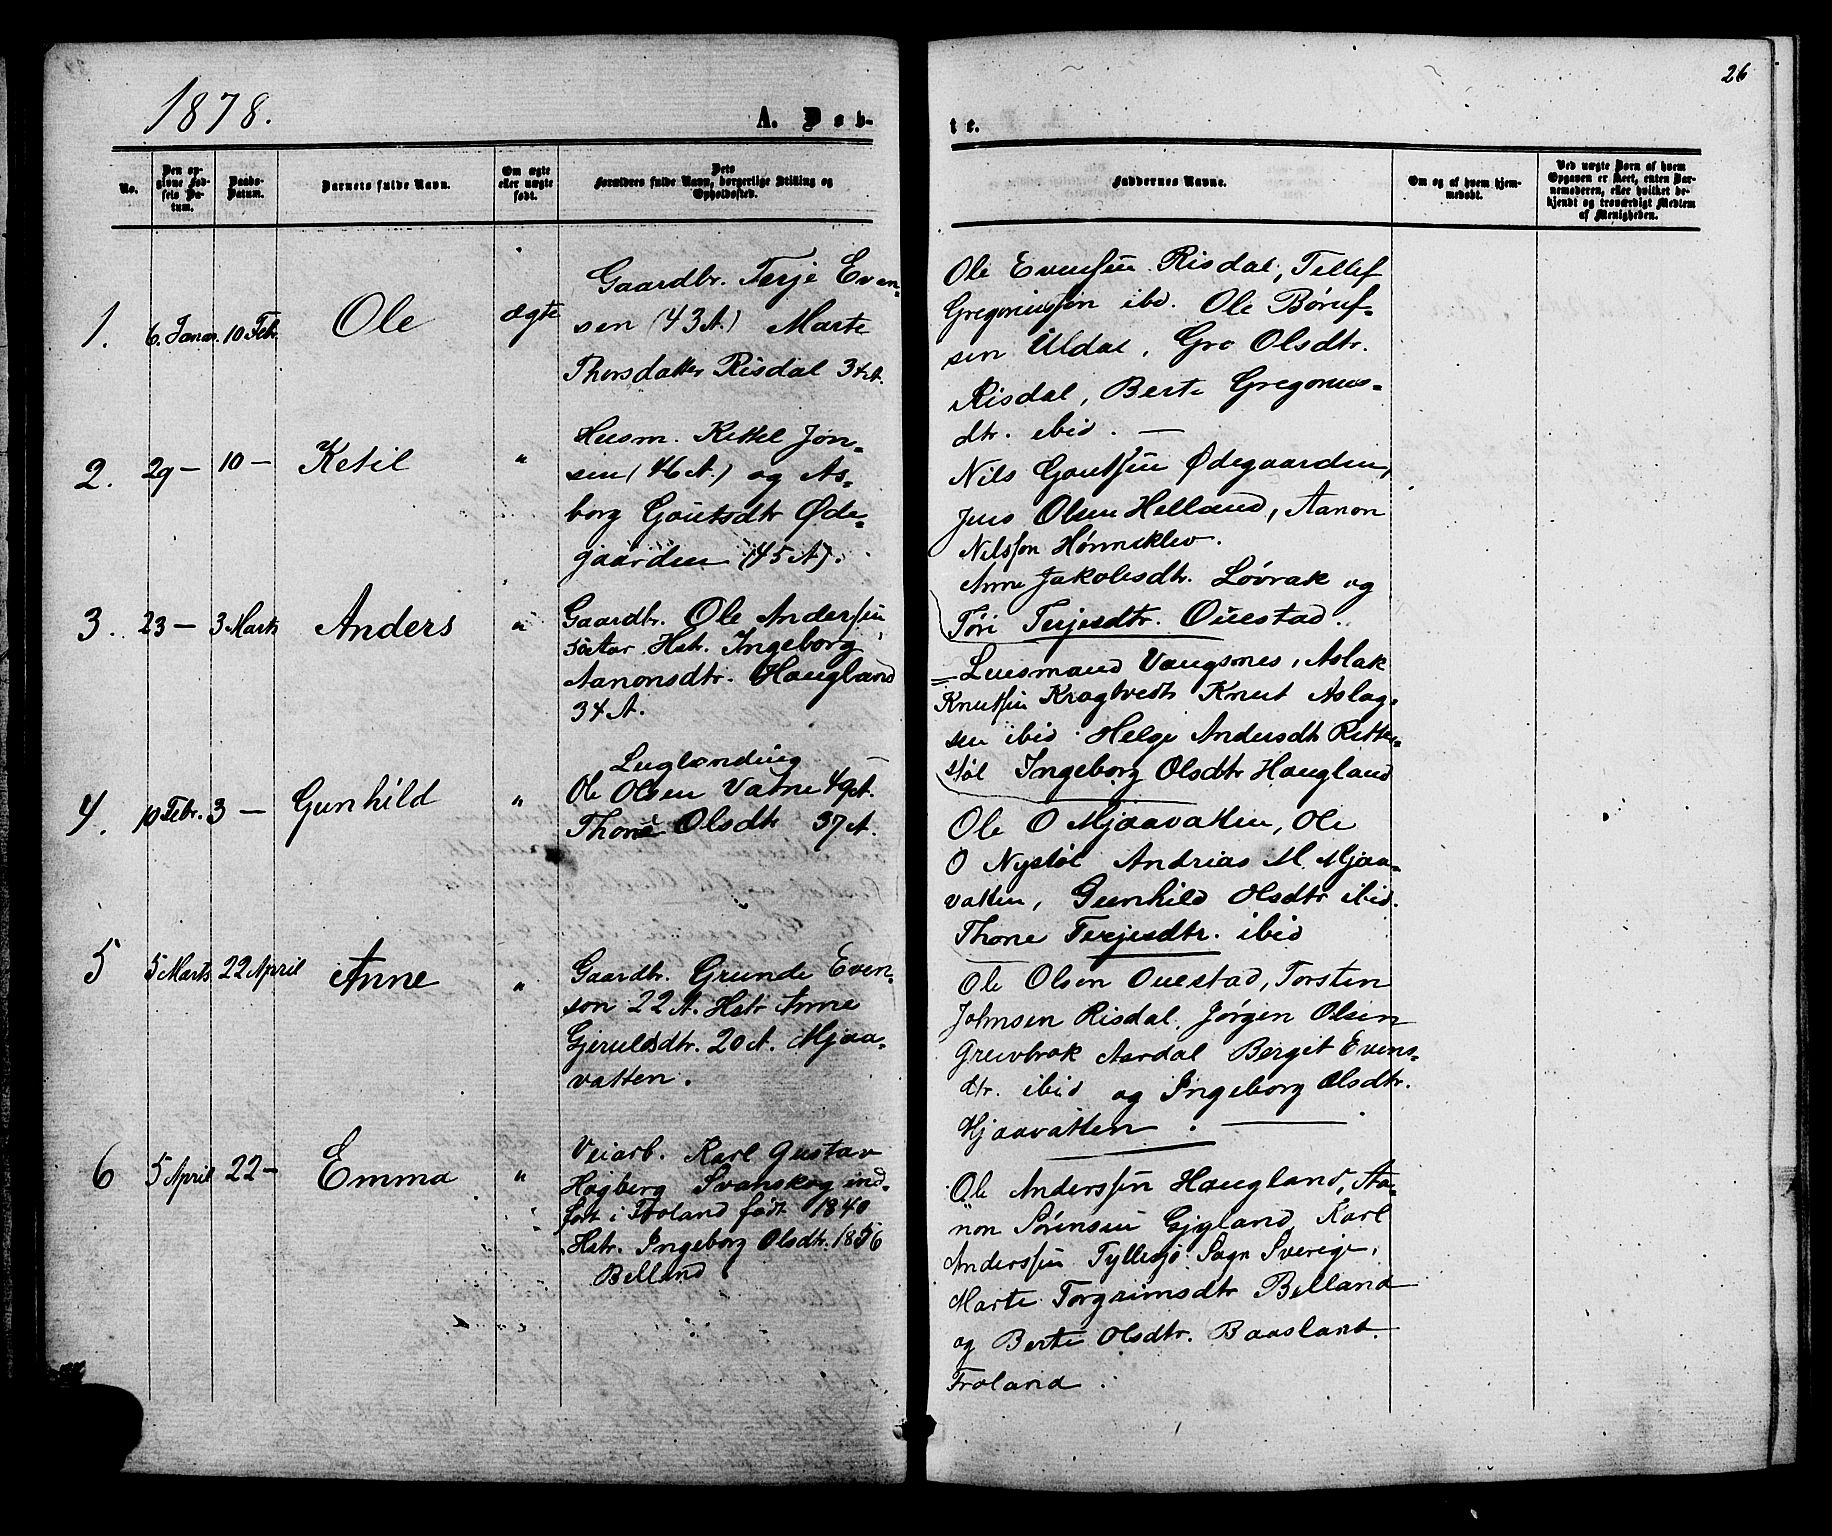 1878.
A. Døb-
te.
26
No.
Den op-
givne Fød-
sels Da-
tum.
Daabs-
Datum.
Barnets fulde Navn.
Om ægte
eller uægte
født.
Dets
Forældres fulde Navn, borgerlige Stilling og
Opholdssted.
Faddernes Navne.
Om og af hvem hjem-
medøbt.
Ved uægte Børn af hvem
Opgaven er skeet, enten Bar-
nemoderen, eller hvilket be-
kjendt og troværdigt Medlem
af Menigheden.
1. 6. Januar. 10 Febr. Ole ægte
Gaardbr. Terje Even-
sen (43 A.) Marte
Thorsdatter Risdal 34 A.
Ole Evensen Risdal, Tellef
Gregoriussøn ibd. Ole Børuf-
sen Uldal, Gro Olsdtr.
Risdal, Berte Gregorius-
dtr. ibid. —
2. 29 — 10 — Ketil "
Husm. Kittel Jøn-
sen (46 A.) og As-
borg Goutsdtr Øde-
gaarden (45 A).
Nils Goutsen Ødegaarden,
Jens Olsen Helland, Aanon
Nilssøn
Anne Jakobsdtr. Løvrak og
Tøri Terjesdtr. Ouestad.
3. 23 — 3 Marts Anders "
Gaardbr. Ole Anderssen
Hstr. Ingeborg
Aanonsdtr. Haugland
34 A.
Lensmand Vangsnes, Aslak
Knutsen Kragtvedt Knut Aslag-
sen ibid. Helge Andersdt
støl Ingeborg Olsdtr Haugland
4. 10 Febr. 3 — Gunhild "
Inglænding —
Ole Olsen Vatne 49 A.
Thone Olsdtr 37 A.
Ole O Mjaavatten, Ole
O Nystøl Andrias M. Mjaa-
vatten, Gunhild Olsdtr ibid.
Thone Terjesdtr. ibid
5 5 Marts 22 April Anne "
Gaardbr. Grunde Even-
son 22 A. Hstr Anne
Gjeruldsdtr. 20 A. Mjaa-
vatten.
Ole Olsen Ouestad, Torsten
Johnsen Risdal. Jørgen Olsen
Greivbrok Aardal Bergit Evens-
dtr. ibid og Ingeborg Olsdtr.
Mjaavatten. —
6 5 April 22 — Emma "
Veiarb. Karl Gustav
Høgberg Svanskog ind-
ført i Froland født 1840
Hstr. Ingeborg Olsdtr. 1856
Belland.
Ole Anderssen Haugland, Aa-
non Sørensen Gjgland, Karl
Anderssen Tyllesjø Sogn Sverige.
Marte Torgrimsdtr Belland
og Berte Olsdtr. Baasland.
Froland.